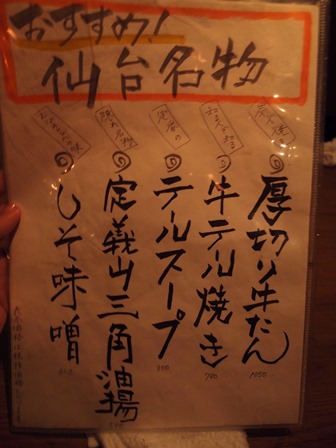 おすすめ!
仙台名物
厚切り牛たん
1050
牛テール焼き
780
定番の
テールスープ
隠れ名物
定義山三角油揚
しそ味噌